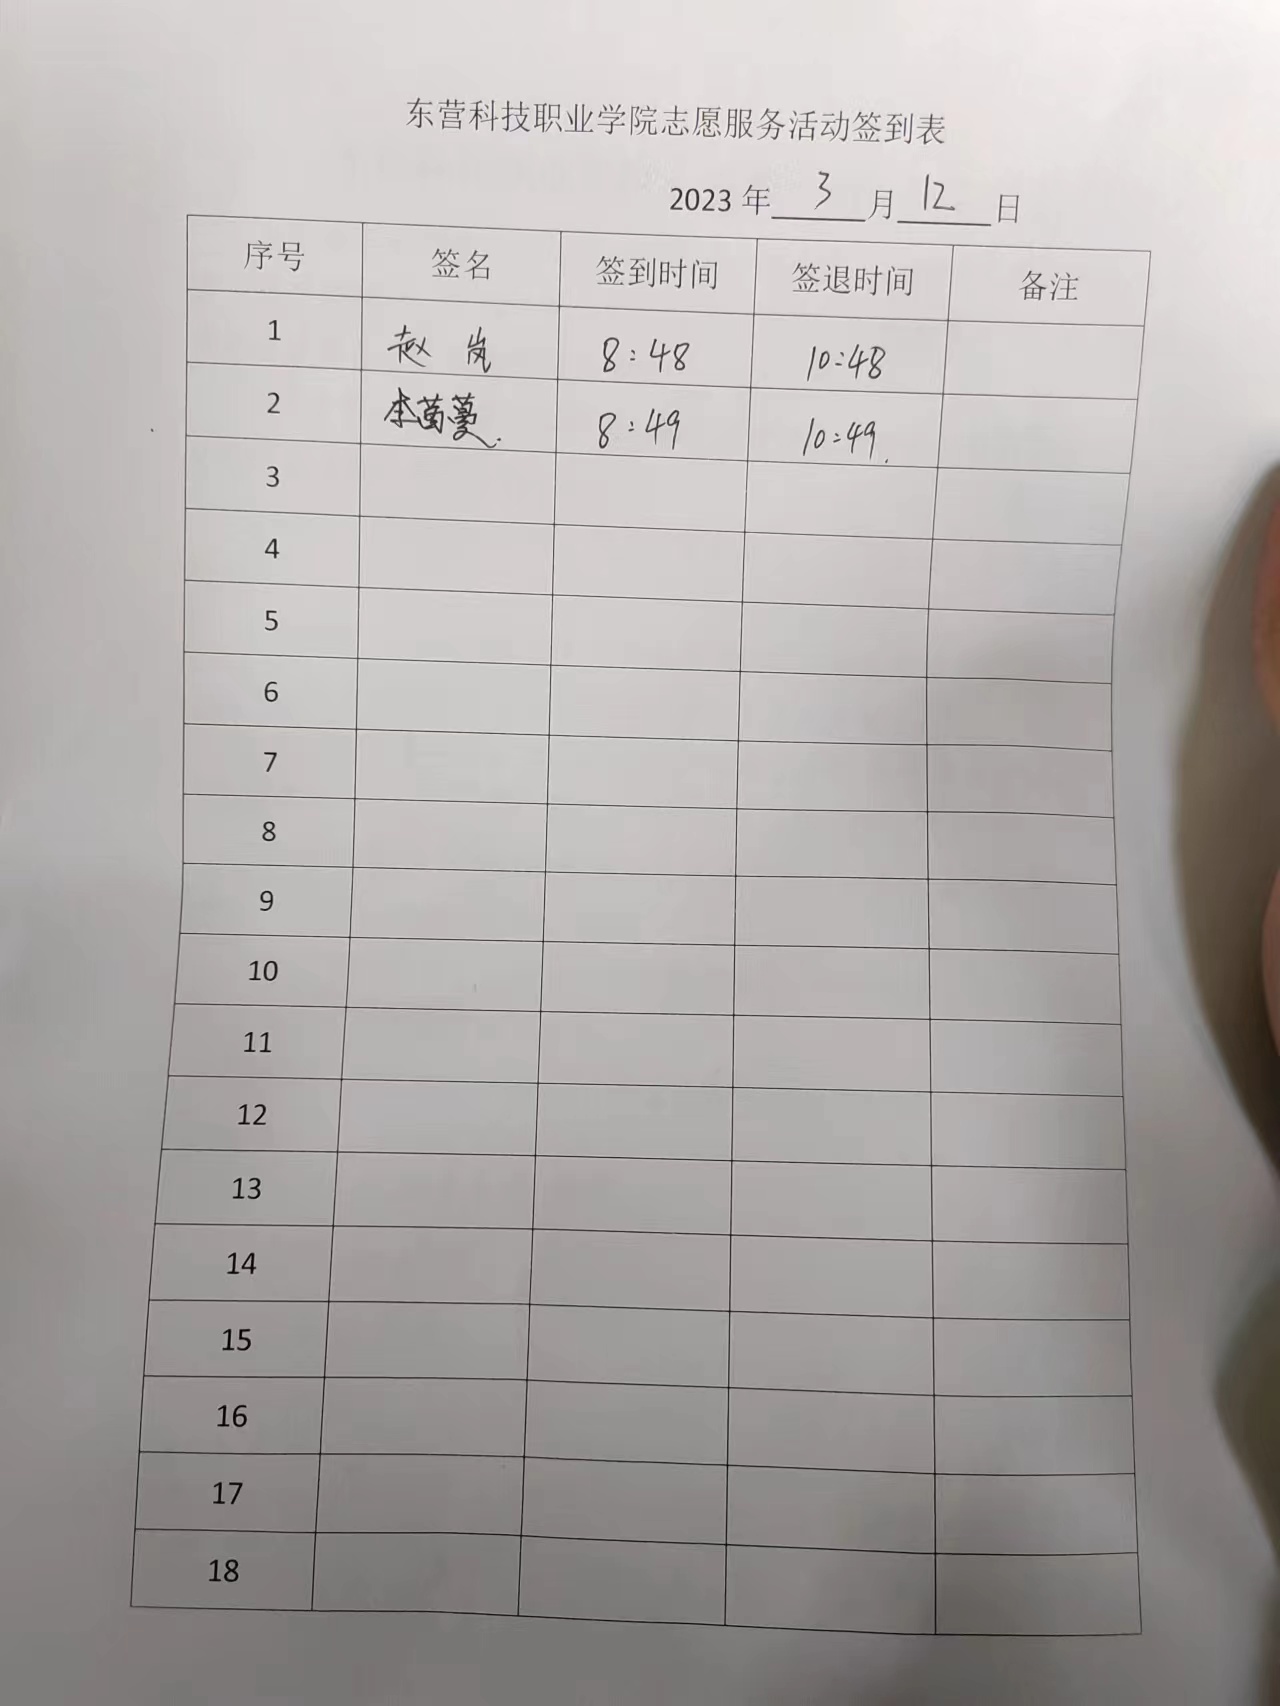 东营科技职业学院志愿服务活动签到表
2023 年 3 月 12 日
序号 签名 签到时间 签退时间 备注
1 赵岚 8:48 10:48
2 李茵蔓. 8:49 10:49.
3
4
5
6
7
8
9
10
11
12
13
14
15
16
17
18